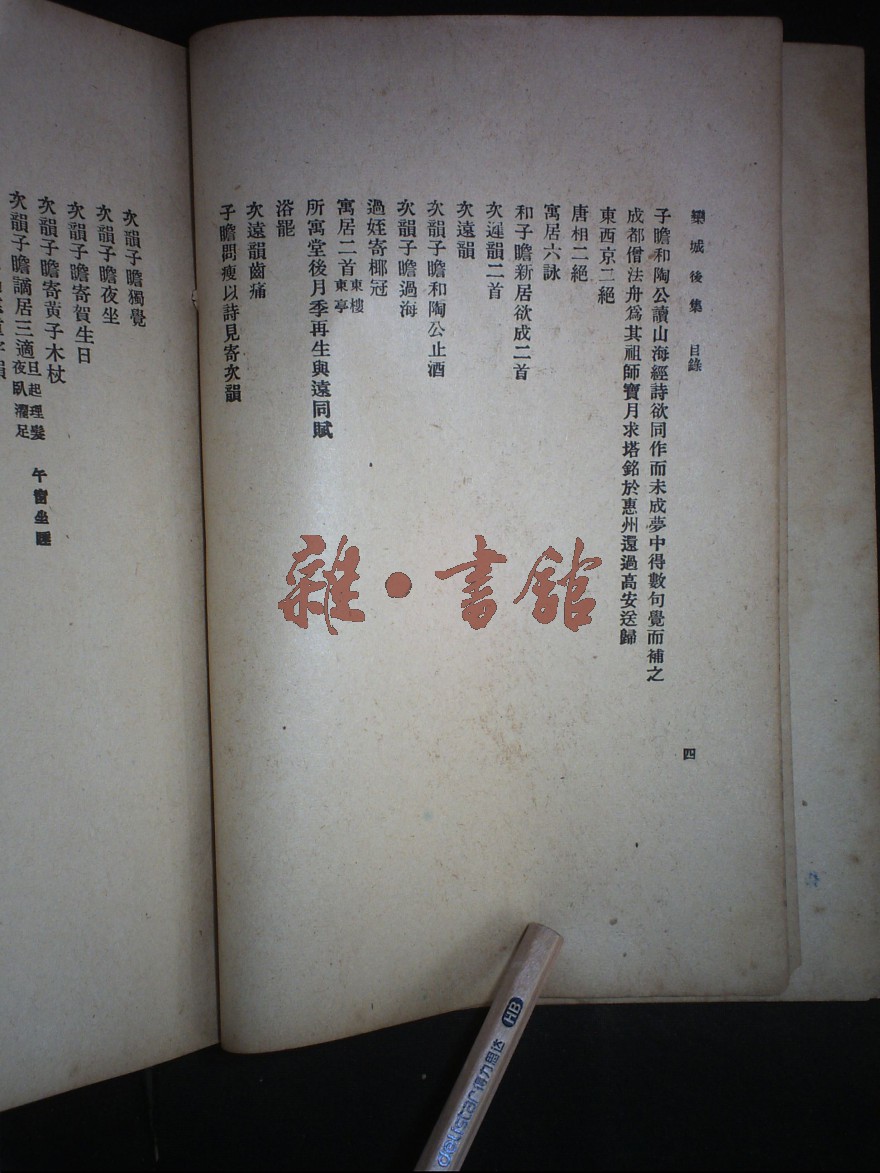 欒城後集 目錄
四
子瞻和陶公讀山海經詩欲同作而未成夢中得數句覺而補之
成都僧法舟為其祖師寶月求塔銘於惠州還過高安送歸
東西京二絕
唐相二絕
寓居六詠
和子瞻新居欲成二首
次遲韻二首
次遠韻
次韻子瞻和陶公止酒
次韻子瞻過海
過姪寄椰冠
寓居二首東亭 東樓
所寓堂後月季再生與遠同賦
浴罷
次遠韻齒痛
子瞻問疾以詩見寄次韻
次韻子瞻獨覺
次韻子瞻夜坐
次韻子瞻寄賀生日
次韻子瞻寄黃子木杖
次韻子瞻謫居三適旦起理髮 午窗坐睡 夜臥濯足
雜・書館
deli star得力思达 HB